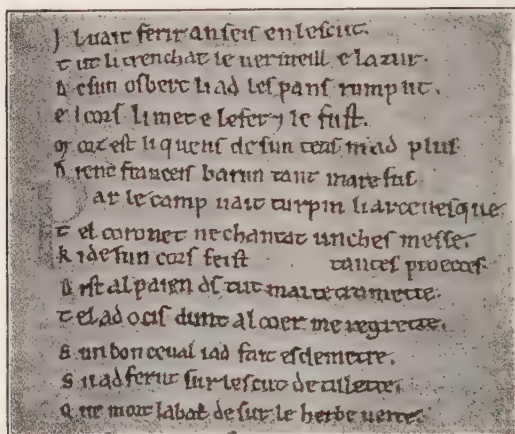 J l uait ferir anseis en lescut.
t ut li trenchat le uermeill e lazur.
d e sun osberc li ad les pans rumput.
e l cors li met e le fer ⁊ le fust.
m orz est li quens de sun tens ni ad plus
d ient franceis barun tant mare fus
P ar le camp uait turpin li arceuesque
t el coronet ne chantat unches messe.
k i de sun cors feist tantes proecces.
d ist al paien ds tut mal te tramette.
t el ad ocis dunt al coer me regrette.
s un bon ceual i ad fait esdemetre.
s i lad ferut sur lescut de tulette.
q ue mort labat desur le herbe uerte.